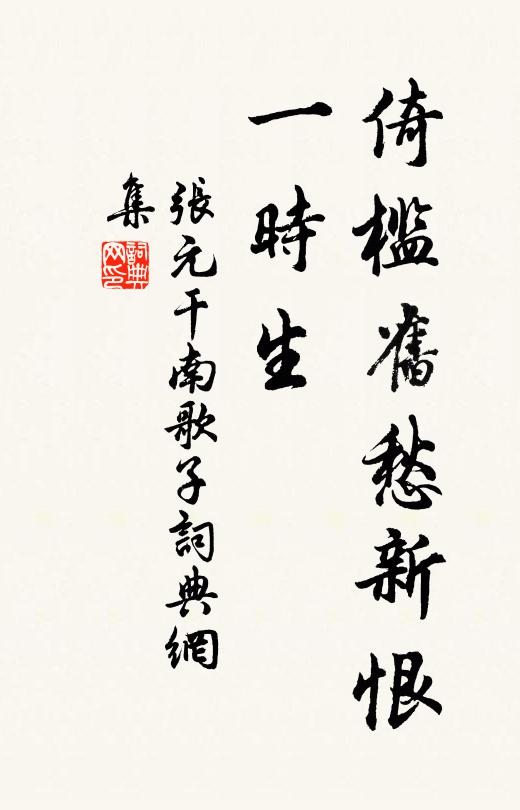 倚檻舊愁新恨
一時生
張元干南歌子詞典網
集
詞典
网印